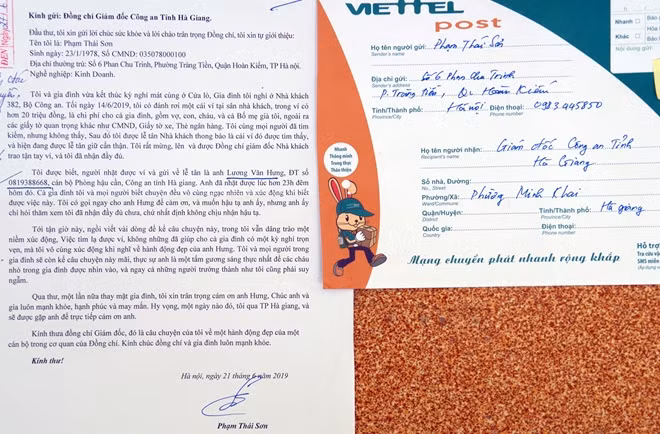 Kính gửi: Đồng chí Giám đốc Công an Tỉnh Hà Giang.
Đầu thư, tôi xin gửi lời chúc sức khỏe và lời chào trân trọng Đồng chí, tôi xin tự giới thiệu:
Tên tôi là: Phạm Thái Sơn
Sinh ngày: 23/1/1978, Số CMND: 035078000100
Địa chỉ thường trú: Số 6 Phan Chu Trinh, Phường Tràng Tiền, Quận Hoàn Kiếm, TP Hà Nội.
Nghề nghiệp: Kinh Doanh.
Tôi và gia đình vừa kết thúc kỳ nghỉ mát cùng ở Cửa lò, Gia đình tôi nghỉ ở Nhà khách
382, Bộ Công an. Tối ngày 14/6/2019, tôi có đánh rơi một cái ví tại sân nhà khách, trong ví có
hơn 20 triệu đồng, là chi phí cho cả gia đình, gồm vợ, con, cháu, và cả Bố mẹ già tôi, ngoài ra
các giấy tờ quan trọng khác như CMND, Giấy tờ xe, Thẻ ngân hàng. Tôi cùng mọi người đã tìm
kiếm, nhưng không thấy, Sau đó tôi được lễ tân Nhà khách thông báo là cái ví đó được tìm thấy,
và hiện đang được lễ tân giữ cẩn thận. Tôi rất mừng, lên và được Đồng chí giám đốc Nhà khách
trao tận tay ví, và tôi đã nhận đầy đủ.
Tôi được biết, người nhặt được ví và gửi về lễ tân là anh Lương Văn Hưng, ĐT số
0819388668, cán bộ Phòng hậu cần, Công an tỉnh Hà Giang. Anh đã nhặt được lúc hơn 23h đêm
hôm đó. Cả gia đình tôi và mọi người biết chuyện đều vô cùng ngạc nhiên và xúc động khi biết
được việc này. Tôi có gọi ngay cho anh Hưng để cảm ơn, và muốn hậu tạ anh ấy, nhưng anh ấy
chỉ hỏi thăm xem tôi đã nhận đầy đủ chưa, chứ nhất định không chịu nhận hậu tạ.
Tôi tận giờ này, ngồi viết vài dòng để kể câu chuyện này, trong tôi vẫn dâng trào một
niềm xúc động, Việc tìm lại được ví, không những đã giúp cho cả gia đình có một kỳ nghỉ trọn
vẹn, mà tôi vô cùng xúc động khi nghĩ về hành động đẹp của anh Hưng. Tôi và mọi người trong
gia đình sẽ còn kể câu chuyện này mãi, thực sự anh là một tấm gương sáng thực nhất để các cháu
nhỏ trong gia đình được nhìn vào, và ngay cả những người trưởng thành như tôi cũng phải suy
ngẫm.
Qua thư, một lần nữa thay mặt gia đình, tôi xin trân trọng cảm ơn anh Hưng, Chúc anh và
gia luôn mạnh khỏe, hạnh phúc và may mắn. Hy vọng, một ngày nào đó, tôi qua TP Hà giang, và
sẽ được gặp anh để trực tiếp cảm ơn anh.
Kính thưa đồng chí Giám đốc, đó là câu chuyện của tôi về một hành động đẹp của một
cán bộ trong cơ quan của Đồng chí. Kính chúc đồng chí và gia đình luôn mạnh khỏe.
Kính thư!
Hà nội, ngày 21 tháng 6 năm 2019
Phạm Thái Sơn
VIETTEL
post
Họ tên người gửi: Phạm Thái Sơn
Sender's name
Địa chỉ gửi: Số 6 Phan Chu Trinh
Sender's address
P. Tràng Tiền, Q. Hoàn Kiếm
Tỉnh/Thành phố: Hà Nội Điện thoại: 0983445850
Province/City Phone number
Họ tên người nhận: Giám đốc Công an Tỉnh
Recipient's name
Hà Giang
Số nhà, Đường:
No., Street
Phường/Xã: Phường Minh Khai
Ward/Commune
Quận/Huyện: Tỉnh/Thành phố: Hà giang
District Province/City
Quốc gia: Điện thoại:
Country Phone number
Nhanh chóng
Thông minh
Trọng tâm
Thân thiện
Mạng chuyển phát nhanh rộng khắp
Nhanh
Khác
Nội dung gửi
Hỗ trợ
Tra cứu
SMS miễn